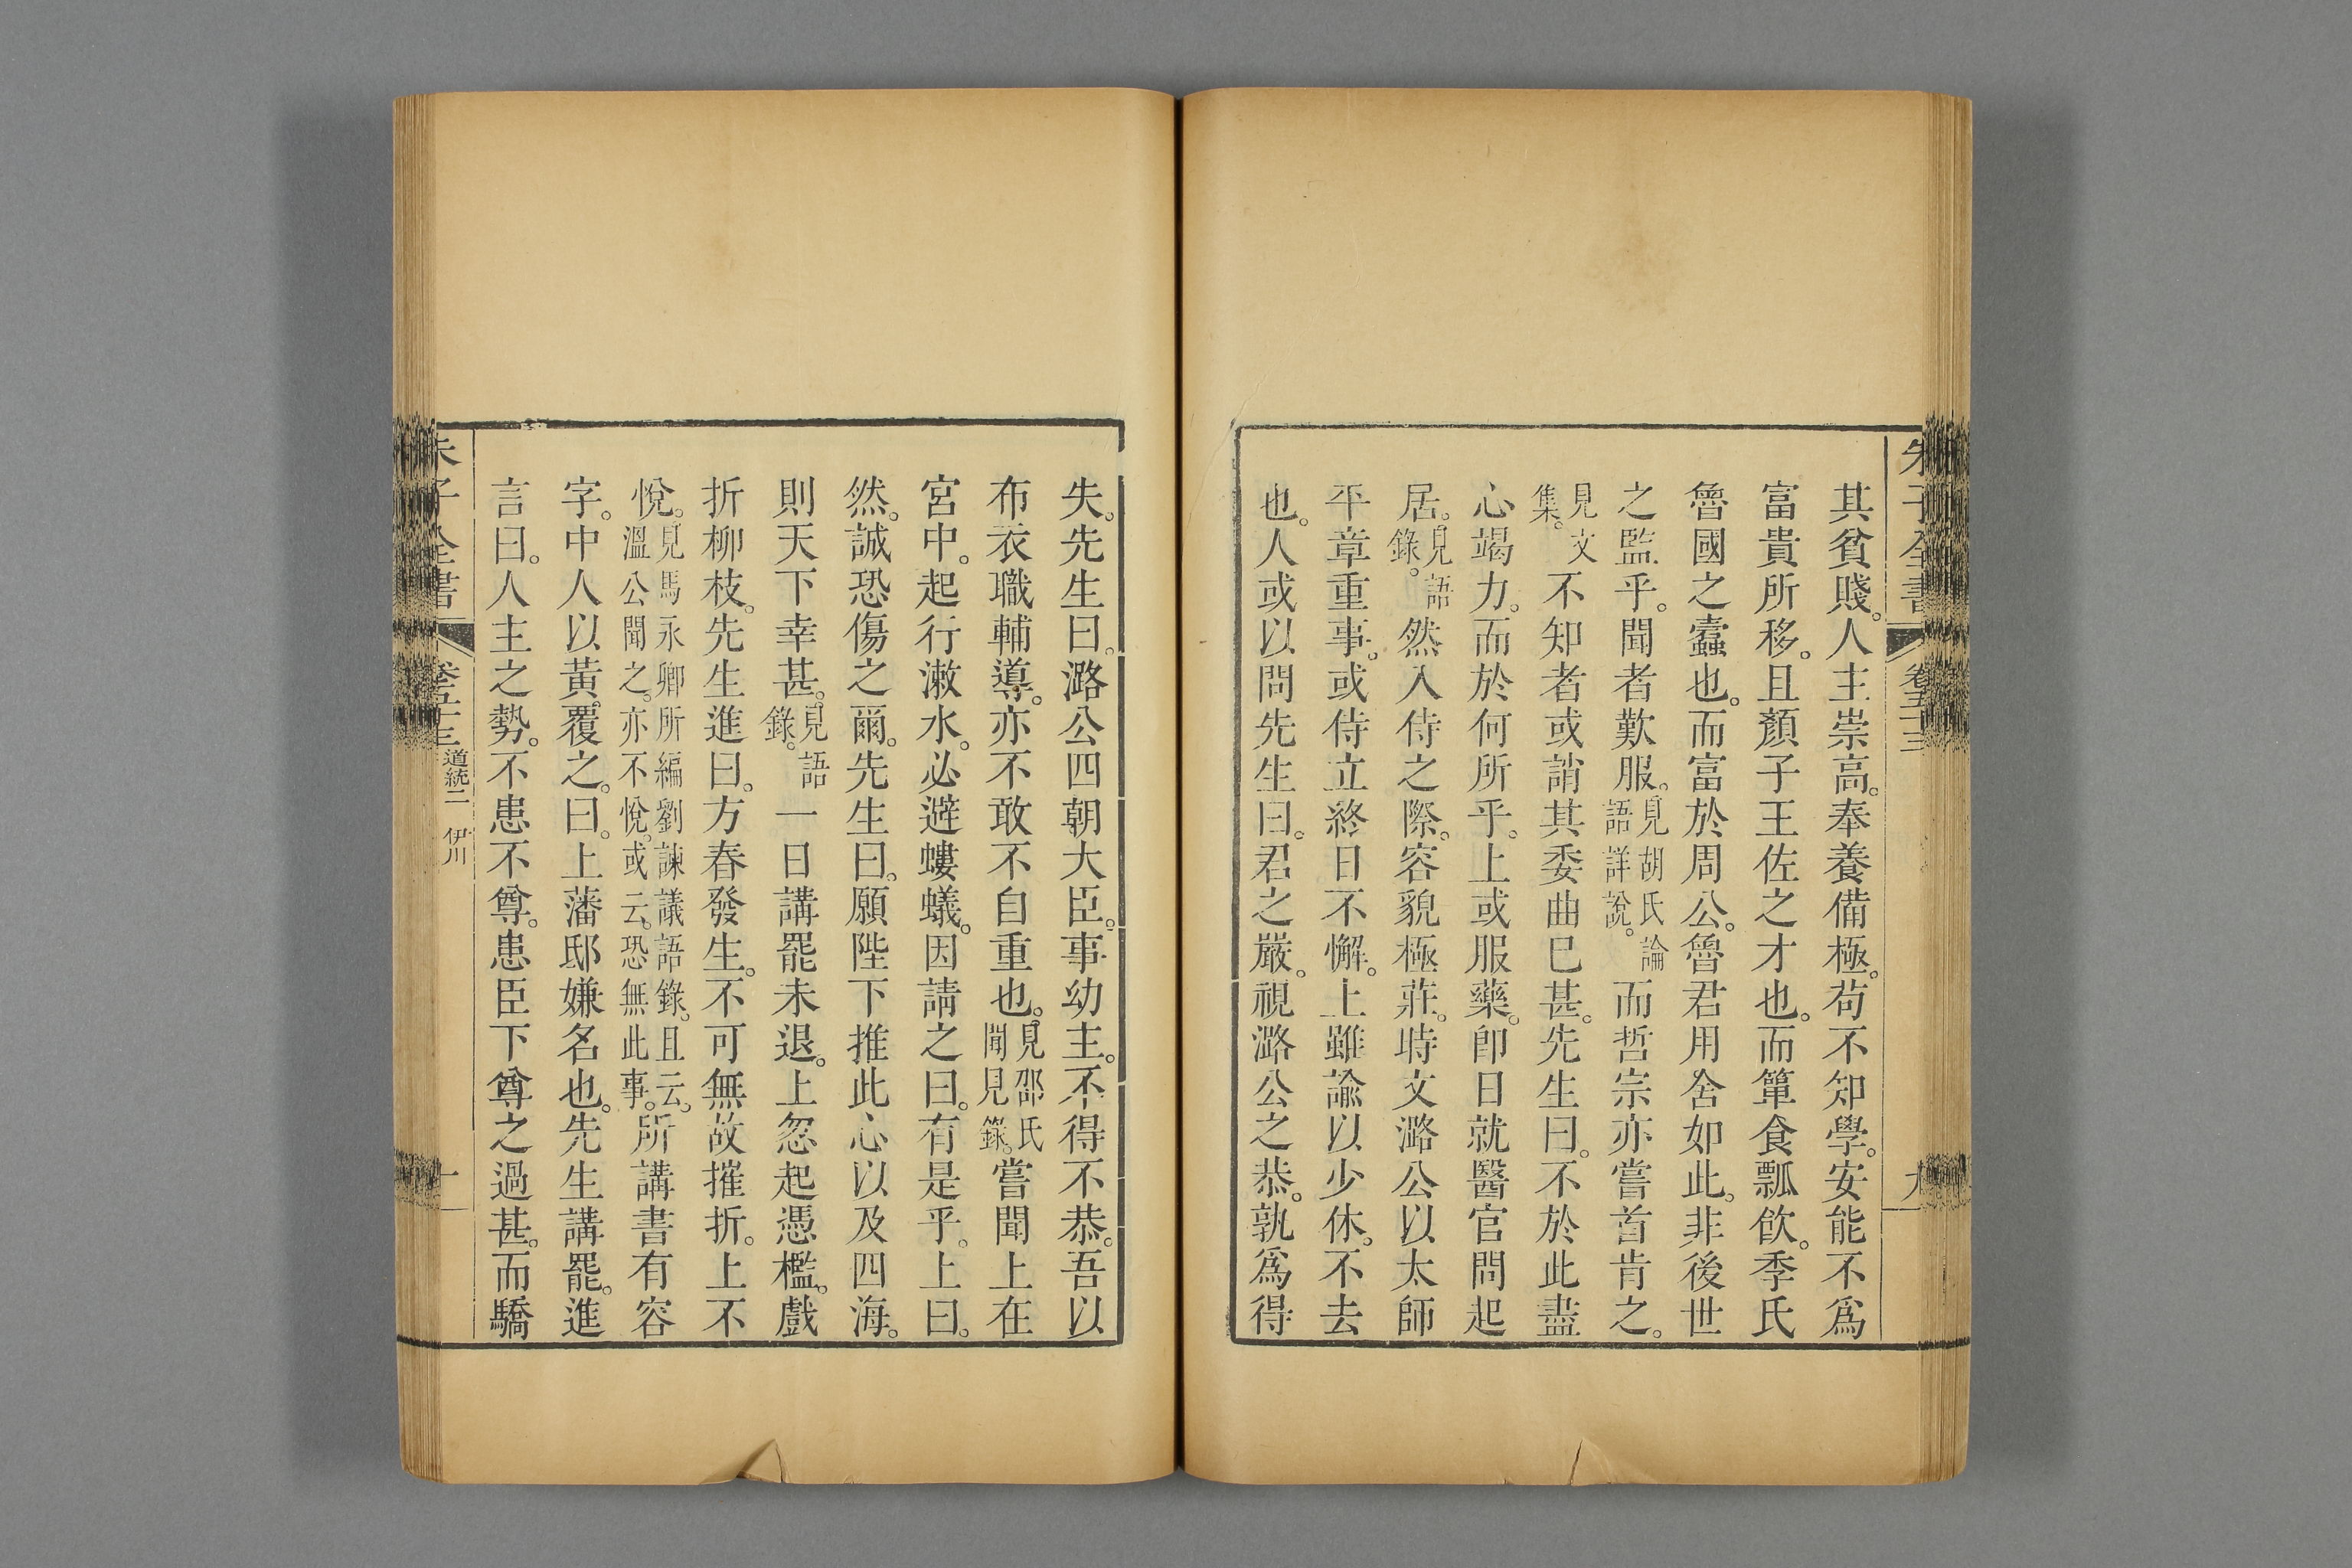 朱子全書 卷五十三 九
其貧賤。人主崇高。奉養備極。苟不知學。安能不爲
富貴所移。且顏子王佐之才也。而簞食瓢飮。季氏
魯國之蠹也。而富於周公。魯君用舍如此。非後世
之監乎。聞者歎服。見胡氏論語詳說。而哲宗亦嘗首肯之。
見文集。不知者或誚其委曲已甚。先生曰。不於此盡
心竭力。而於何所乎。上或服藥。卽日就醫官問起
居。見語錄。然入侍之際。容貌極莊。時文潞公以太師
平章重事。或侍立終日不懈。上雖諭以少休。不去
也。人或以問先生曰。君之嚴。視潞公之恭。孰爲得
失。先生曰。潞公四朝大臣。事幼主。不得不恭。吾以
布衣職輔導。亦不敢不自重也。見邵氏聞見錄。嘗聞上在
宮中。起行漱水。必避螻蟻。因請之曰。有是乎。上曰。
然。誠恐傷之爾。先生曰。願陛下推此心以及四海。
則天下幸甚。見語錄。一日講罷未退。上忽起憑檻。戲
折柳枝。先生進曰。方春發生。不可無故摧折。上不
悅。見馬永卿所編劉諫議語錄。且云。溫公聞之。亦不悅。或云。恐無此事。所講書有容
字。中人以黃覆之。曰。上藩邸嫌名也。先生講罷。進
言曰。人主之勢。不患不尊。患臣下尊之過甚。而驕
朱子全書 卷五十三 道統二 伊川 十